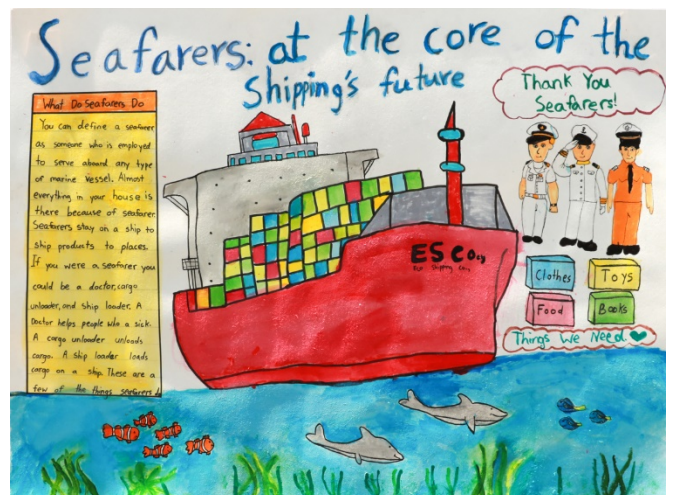 Seafarers: at the core of the
Shipping's future
What Do Seafarers Do
You can define a seafarer
as someone who is employed
to serve aboard any type
of marine vessel. Almost
everything in your house is
there because of seafarer.
Seafarers stay on a ship to
ship products to places.
If you were a seafarer you
could be a doctor, cargo
unloader, and ship loader. A
Doctor helps people who a sick.
A cargo unloader unloads
cargo. A ship loader loads
cargo on a ship. These are a
few of the things seafarers
Thank You
Seafarers!
ESCO
Shipping
Clothes
Toys
Food
Books
Things We Need